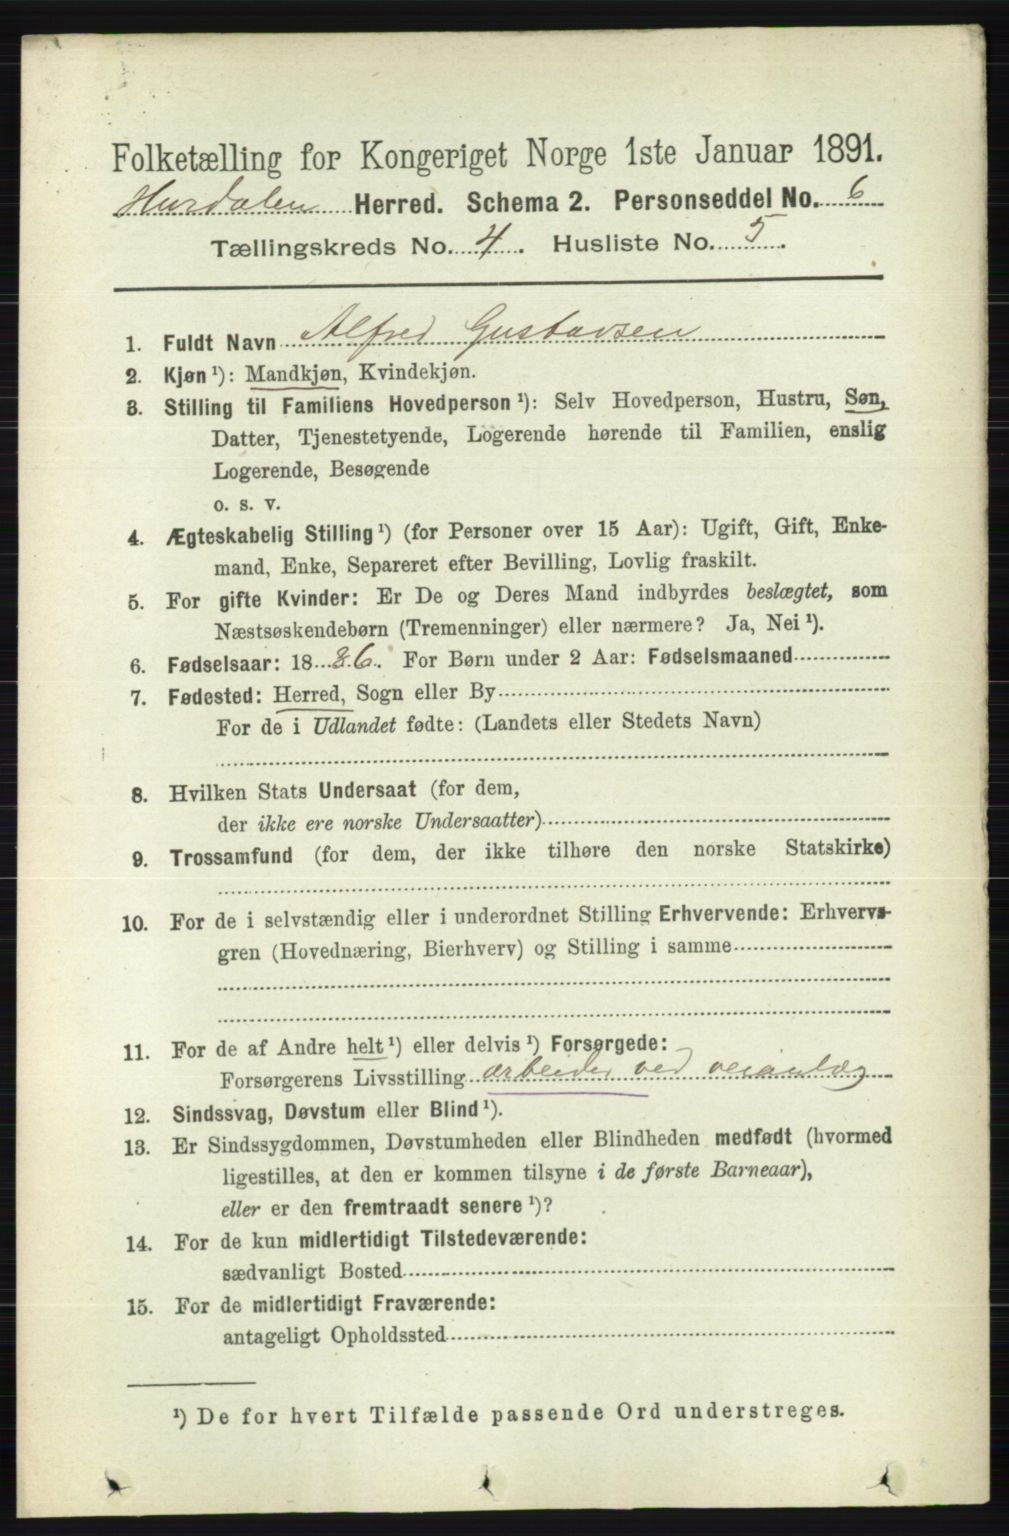 Folketælling for Kongeriget Norge 1ste Januar 1891.
Hurdalen Herred. Schema 2. Personseddel No. 6
Tællingskreds No. 4. Husliste No. 5.
1. Fuldt Navn Alfred Gustavsen
2. Kjøn ¹): Mandkjøn, Kvindekjøn.
3. Stilling til Familiens Hovedperson ¹): Selv Hovedperson, Hustru, Søn,
Datter, Tjenestetyende, Logerende hørende til Familien, enslig
Logerende, Besøgende
o. s. v.
4. Ægteskabelig Stilling ¹) (for Personer over 15 Aar): Ugift, Gift, Enke-
mand, Enke, Separeret efter Bevilling, Lovlig fraskilt.
5. For gifte Kvinder: Er De og Deres Mand indbyrdes beslægtet, som
Næstsøskendebørn (Tremenninger) eller nærmere? Ja, Nei ¹).
6. Fødselsaar: 1886. For Børn under 2 Aar: Fødselsmaaned
7. Fødested: Herred, Sogn eller By
For de i Udlandet fødte: (Landets eller Stedets Navn)
8. Hvilken Stats Undersaat (for dem,
der ikke ere norske Undersaatter)
9. Trossamfund (for dem, der ikke tilhøre den norske Statskirke)
10. For de i selvstændig eller i underordnet Stilling Erhvervende: Erhvervs-
gren (Hovednæring, Bierhverv) og Stilling i samme
11. For de af Andre helt ¹) eller delvis ¹) Forsørgede:
Forsørgerens Livsstilling arbeider ved veianlæg
12. Sindssvag, Døvstum eller Blind ¹).
13. Er Sindssygdommen, Døvstumheden eller Blindheden medfødt (hvormed
ligestilles, at den er kommen tilsyne i de første Barneaar),
eller er den fremtraadt senere ¹)?
14. For de kun midlertidigt Tilstedeværende:
sædvanligt Bosted
15. For de midlertidigt Fraværende:
antageligt Opholdssted
¹) De for hvert Tilfælde passende Ord understreges.